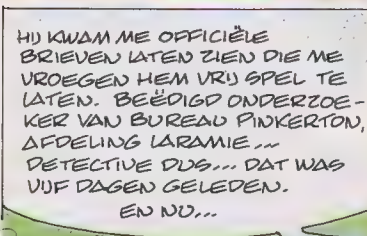 HIJ KWAM ME OFFICIËLE
BRIEVEN LATEN ZIEN DIE ME
VROEGEN HEM VRIJ SPEL TE
LATEN. BEËDIGD ONDERZOE-
KER VAN BUREAU PINKERTON,
AFDELING LARAMIE...
DETECTIVE DUS... DAT WAS
VIJF DAGEN GELEDEN.
EN NU...